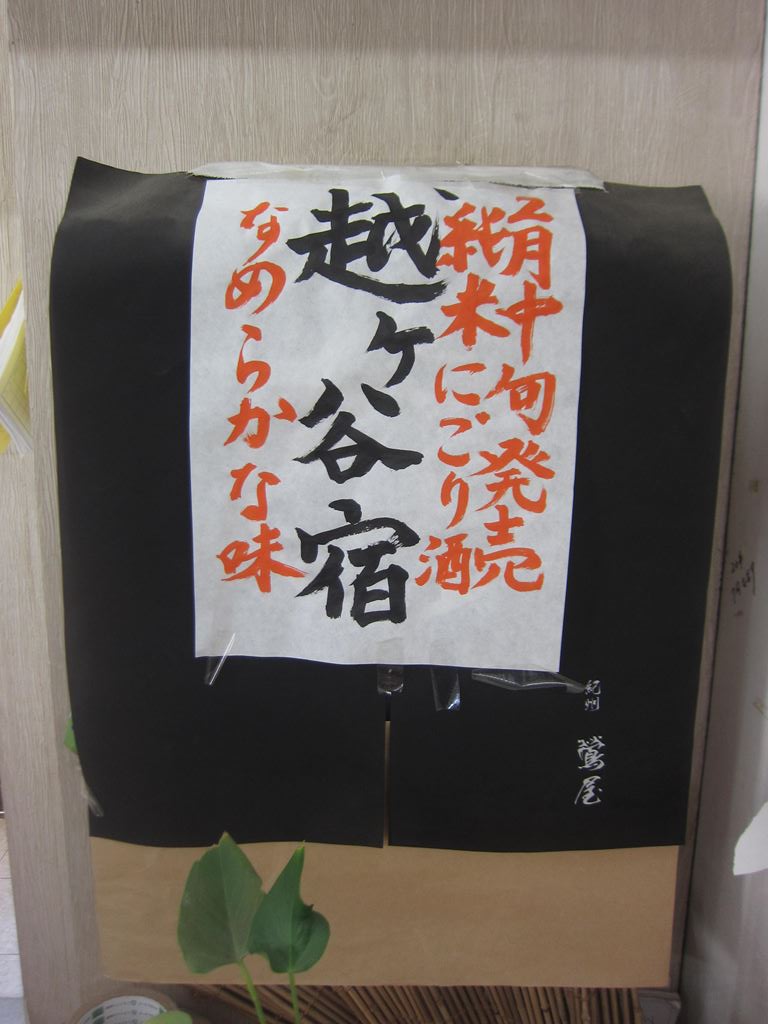 月中旬発売
純米にごり酒
越ヶ谷宿
なめらかな味
紀州
鶯屋